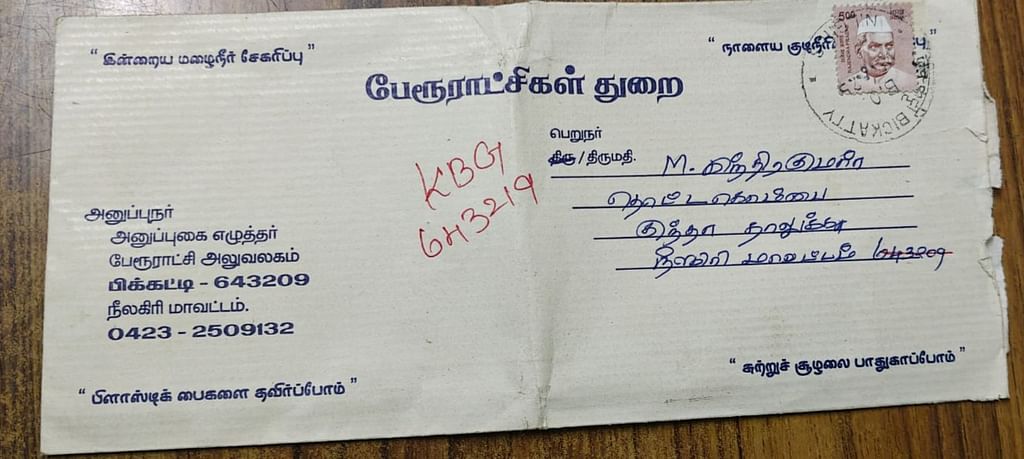 " இன்றைய மழைநீர் சேகரிப்பு "
" நாளைய
பேரூராட்சிகள் துறை
500
BICKATTY
பெறுநர்
திரு / திருமதி.
M.
குந்தா தாலுக்கா
நீலகிரி மாவட்டம் 643209
KBG
643219
அனுப்புநர்
அனுப்புகை எழுத்தர்
பேரூராட்சி அலுவலகம்
பிக்கட்டி - 643209
நீலகிரி மாவட்டம்.
0423 - 2509132
" பிளாஸ்டிக் பைகளை தவிர்ப்போம் "
" சுற்றுச் சூழலை பாதுகாப்போம் "